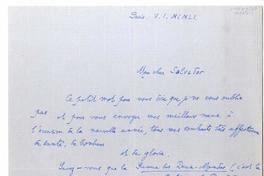 Paris V. I. MCMLI.
Mon cher Salvador
Ce petit mot pour vous dire que je ne vous oublie
pas et pour vous envoyer mes meilleurs vœux à
l'occasion de la nouvelle année, tous mes souhaits très affectueux
de santé, de bonheur
et de gloire.
vous que la Revue des Deux-Mondes (c'est la